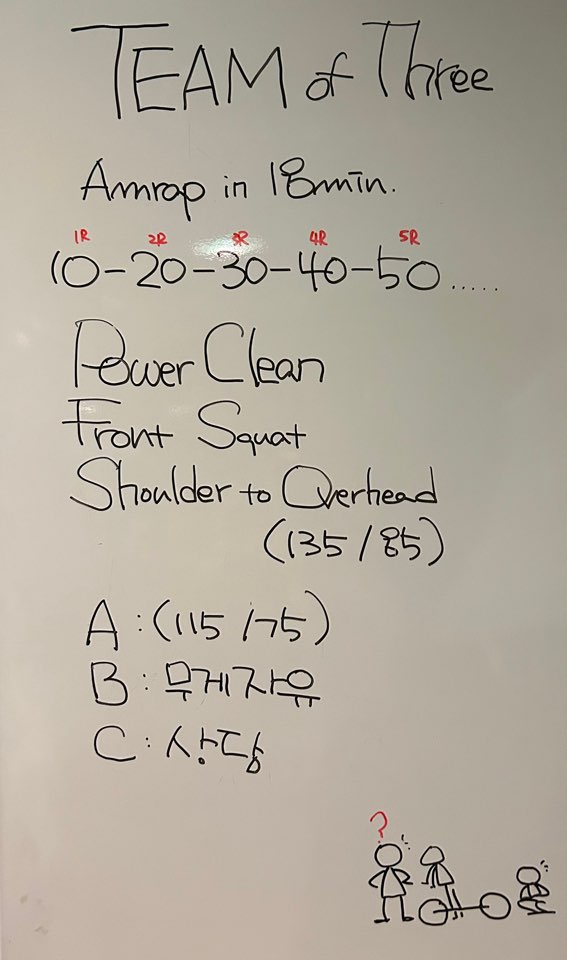 TEAM of Three
Amrap in 18min.
1R 2R 3R 4R 5R
10-20-30-40-50.....
Power Clean
Front Squat
Shoulder to Overhead
(135/85)
A : (115/75)
B : 무게자유
C : 상담
?